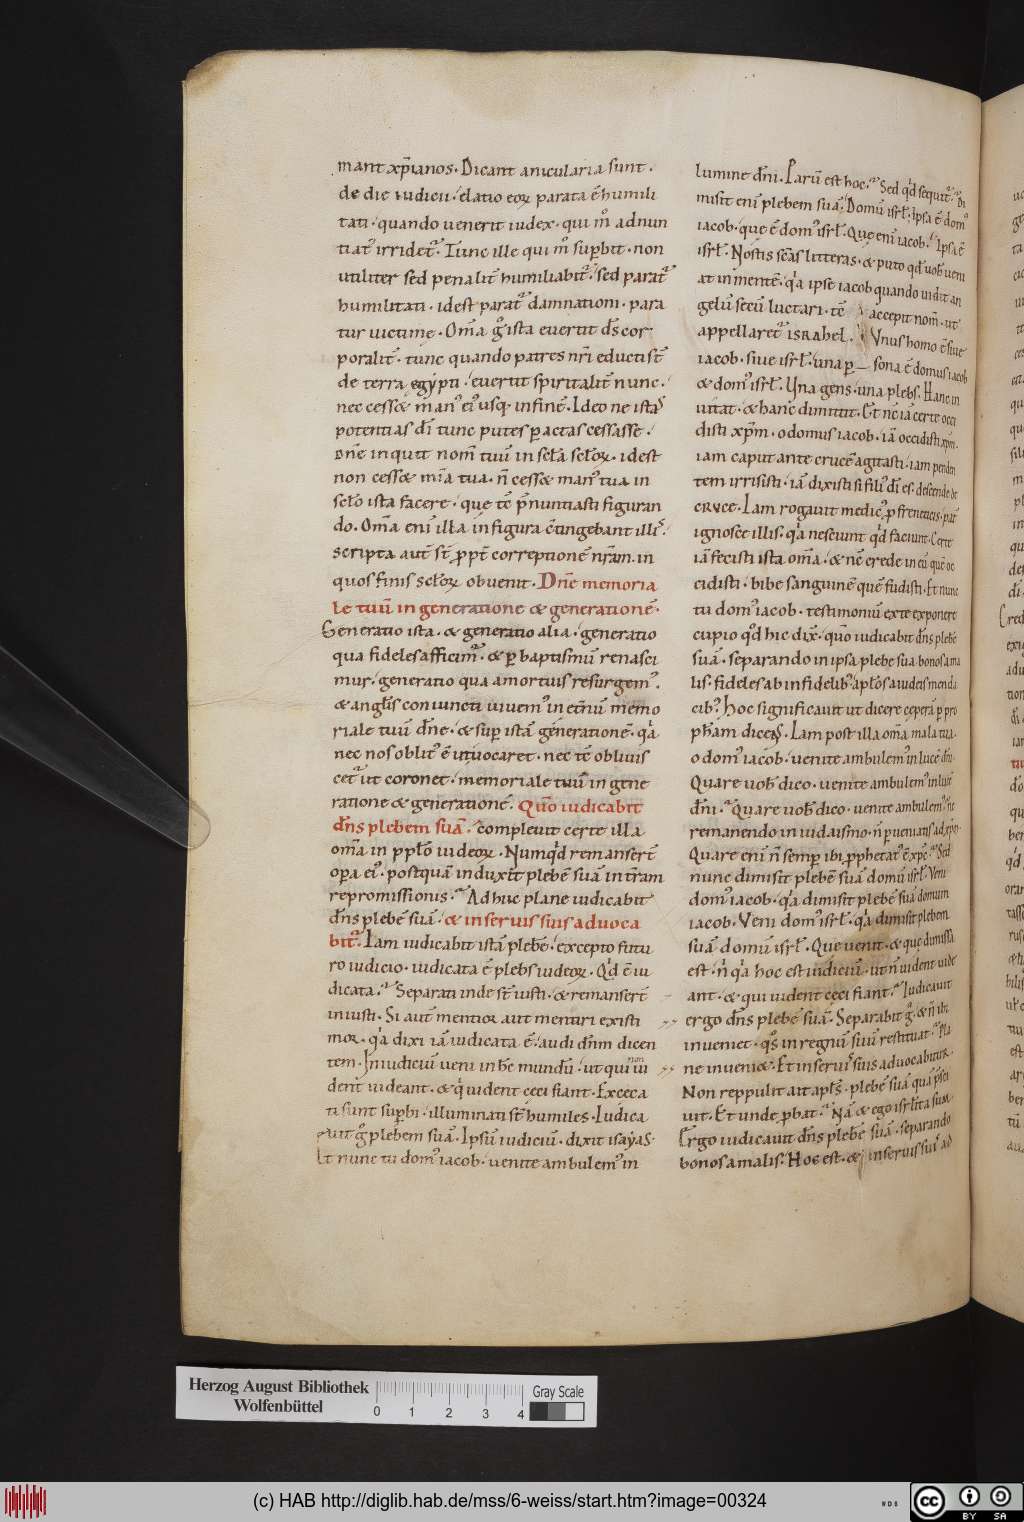 mant xp̄ianos. Dicant anicularia sunt.
de die iudicii. elatio eoꝝ parata ē humili
tati. quando uenerit iudex. qui m̊ adnun
tiat᷒ irridet᷒. Tunc ille qui m̊ suꝑbit. non
utiliter sed penalit̄ humiliabit᷒. sed parat᷒
humilitati. idest parat᷒ damnationi. para
tur uictime. Om̄a g̊ ista euertit d̄s cor
poralit̄. tunc quando patres n̄ri educti st̄
de terra egypti. euertit spiritalit̄ nunc.
nec cessæ man᷒ ei᷒ usq; in finē. Ideo ne istas
potentias d̄i tunc putes ꝑactas cessasse.
Dn̄e inquit nom̄ tuū in sc̄la sc̄loꝝ. idest
non cessæ mīa tua. n̄ cessæ man᷒ tua in
sc̄lo ista facere. que tc̄ p̄nuntiasti figuran
do. Om̄a enī illa in figura c̄tingebant illis.
scripta aut̄ st̄ ꝓpt̄ correptionē nr̄am. in
quos finis scl̄oꝝ obuenit. Dn̄e memoria
le tuū in generatione & generationē.
Generatio ista. & generatio alia. generatio
qua fideles afficim᷒. & ꝑ baptismū renasci
mur. generatio qua a mortuis resurgem᷒.
& angl̄is coniuncti uiuem᷒ in et̄nū. memo
riale tuū dn̄e. & suꝑ istā generationē. q̄a
nec nos oblit᷒ ē ut uocaret. nec tc̄ obliuis
cet᷒ ut coronet. memoriale tuū in gene
ratione & generationē. Qm̄o iudicabit
dn̄s plebem suā. compleuit certe illa
om̄a in ppl̄o iudeoꝝ. Numqd̄ remanser̄t
oꝑa ei᷒. postquā induxit plebē suā in t̄ram
repromissionis. Adhuc plane iudicabit
dn̄s plebē suā. & in seruis suis aduoca
bit᷒. Iam iudicabit istā plebē. excepto futu
ro iudicio. iudicata ē plebs iudeoꝝ. Qd̄ ē iu
dicata. Separati inde st̄ iusti. & remanser̄t
iniusti. Si aut̄ mentior aut mentiri existi
mor. q̄a dixi iā iudicata ē. audi dn̄m dicen
tem. In iudiciū ueni in hc̄ mundū. ut qui non ui
dent uideant. & q̄ uident ceci fiant. Exceca
ti sunt suꝑbi. illuminati st̄ humiles. Iudica
uit g̊ plebem suā. Ipsū iudiciū. dixit isayas.
Et nunc tu dom᷒ iacob. uenite ambulem᷒ in
lumine dn̄i. Parū est hoc. Sed qd̄ sequit᷒. Di
misit enī plebem suā. Domū isr̄l. Ipsa ē dom᷒
iacob. que ē dom᷒ isr̄l. Que enī iacob. Ipsa ē
isr̄l. Nostis sc̄as litteras. & puto qd̄ uob̄ ueni
at in mentē. q̄a ipse iacob quando uidit an
gelū secū luctari. tc̄ accepit nom̄. ut
appellaret᷒ israhel. Unus homo ē siue
iacob. siue isr̄l. una ꝑ sona ē domus iacob
& dom᷒ isr̄l. Una gens. una plebs. Hanc in
uitat. & hanc dimittit. Et nc̄ iā certe occi
disti xp̄m. o domus iacob. iā occidisti xp̄m.
iam caput ante crucē agitasti. iam penden
tem irrisisti. iā dixisti si fili᷒ d̄i es. descende de
cruce. Iam rogauit medic᷒ ꝓ freneticis. pat̄
ignosce illis. q̄a nesciunt qd̄ faciunt. Certe
iā fecisti ista om̄a. & nc̄ crede in eū quē oc
cidisti. bibe sanguinē quē fudisti. Et nunc
tu dom᷒ iacob. testimoniū ex te exponere
cupio qd̄ hic dix̄. qm̄o iudicabit dn̄s plebē
suā. separando in ipsa plebe sua bonos a ma
lis. fideles ab infidelib᷒. apl̄os a iudeis menda
cib᷒. Hoc significauit ut dicere ceperā ꝑ pro
ph̄am dicens. Iam post illa om̄a mala tua.
o dom᷒ iacob. uenite ambulem᷒ in luce dn̄i.
Quare uob̄ dico. uenite ambulem᷒ in luce
dn̄i. Quare uob̄ dico. uenite ambulem᷒. ne
remanendo in iudaismo. n̄ ꝑueniatis ad xp̄m.
Quare enī n̄ semꝑ ibi ꝓphetat᷒ ē xp̄c. Sed
nunc dimisit plebē suā domū isr̄l. Veni
dom᷒ iacob. q̄a dimisit plebē suā domum
iacob. Veni dom᷒ isr̄l. q̄a dimisit plebem
suā domū isr̄l. Que uenit. & que dimissa
est. n̄ q̄a hoc est iudiciū. ut n̄ uident uide
ant. & qui uident ceci fiant. Iudicauit
ergo dn̄s plebē suā. Separabit g̊. & n̄ ibi
inueniet. qs̄ in regnū suū restituat. Pla
ne inueniæ. Et in seruis suis aduocabitur.
Non reppulit ait apl̄s. plebē suā quā p̄sci
uit. Et unde ꝓbat. Nā & ego isr̄lita sum.
Ergo iudicauit dn̄s plebē suā. separando
bonos a malis. Hoc est. & in seruis suis ad
Herzog August Bibliothek
Wolfenbüttel
0 1 2 3 4
Gray Scale
(c) HAB http://diglib.hab.de/mss/6-weiss/start.htm?image=00324
cc BY SA